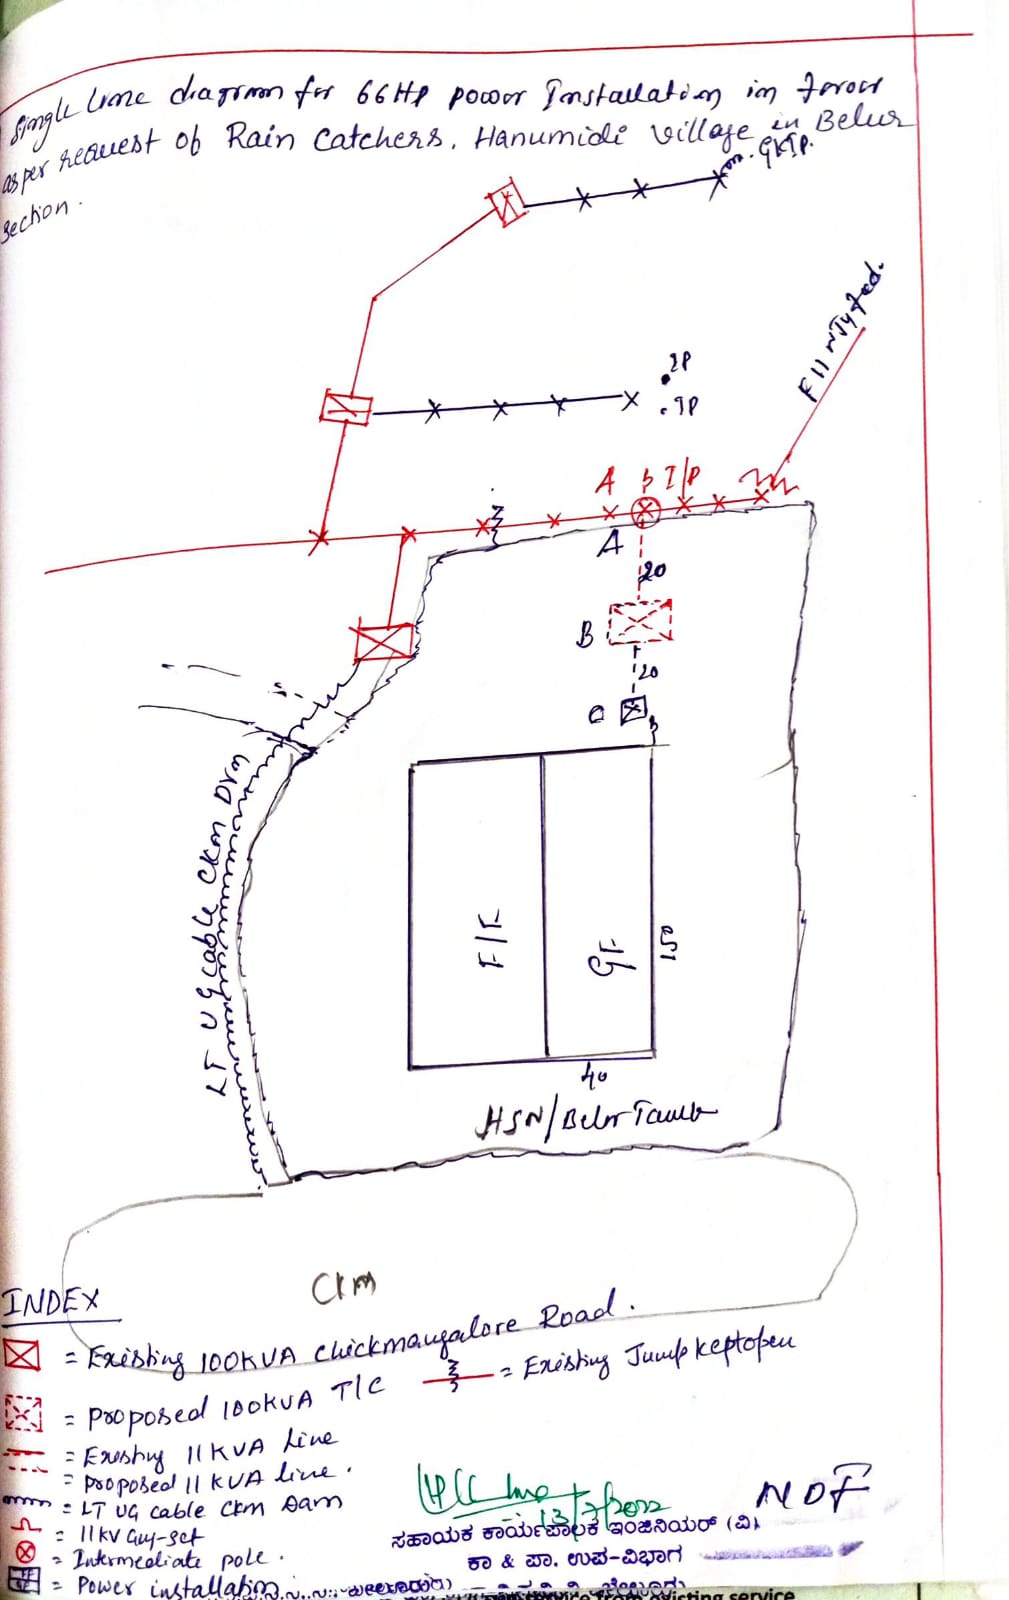 Single line diagram for 66HP power Installation in favour
as per request of Rain Catchers, Hanumidi village in Belur
section.
GKIP.
2P
.IP
F11
A I/P
A
20
B
20
C
LT UG cable Ckm
F/F
GF
150
40
HSN/Belur
Ckm
INDEX
= Existing 100KVA Chickmangalore Road.
= Proposed 100KVA T/C
= Existing Jump kept open
= Existing 11KVA Line
= Proposed 11KVA line.
= LT UG cable Ckm
= 11KV Guy-set
= Intermediate pole.
= Power installation
13/7/2022
NOF
ಸಹಾಯಕ ಕಾರ್ಯಪಾಲಕ ಇಂಜಿನಿಯರ್ (ವಿ)
ಕಾ & ಪಾ. ಉಪ-ವಿಭಾಗ
service from existing service